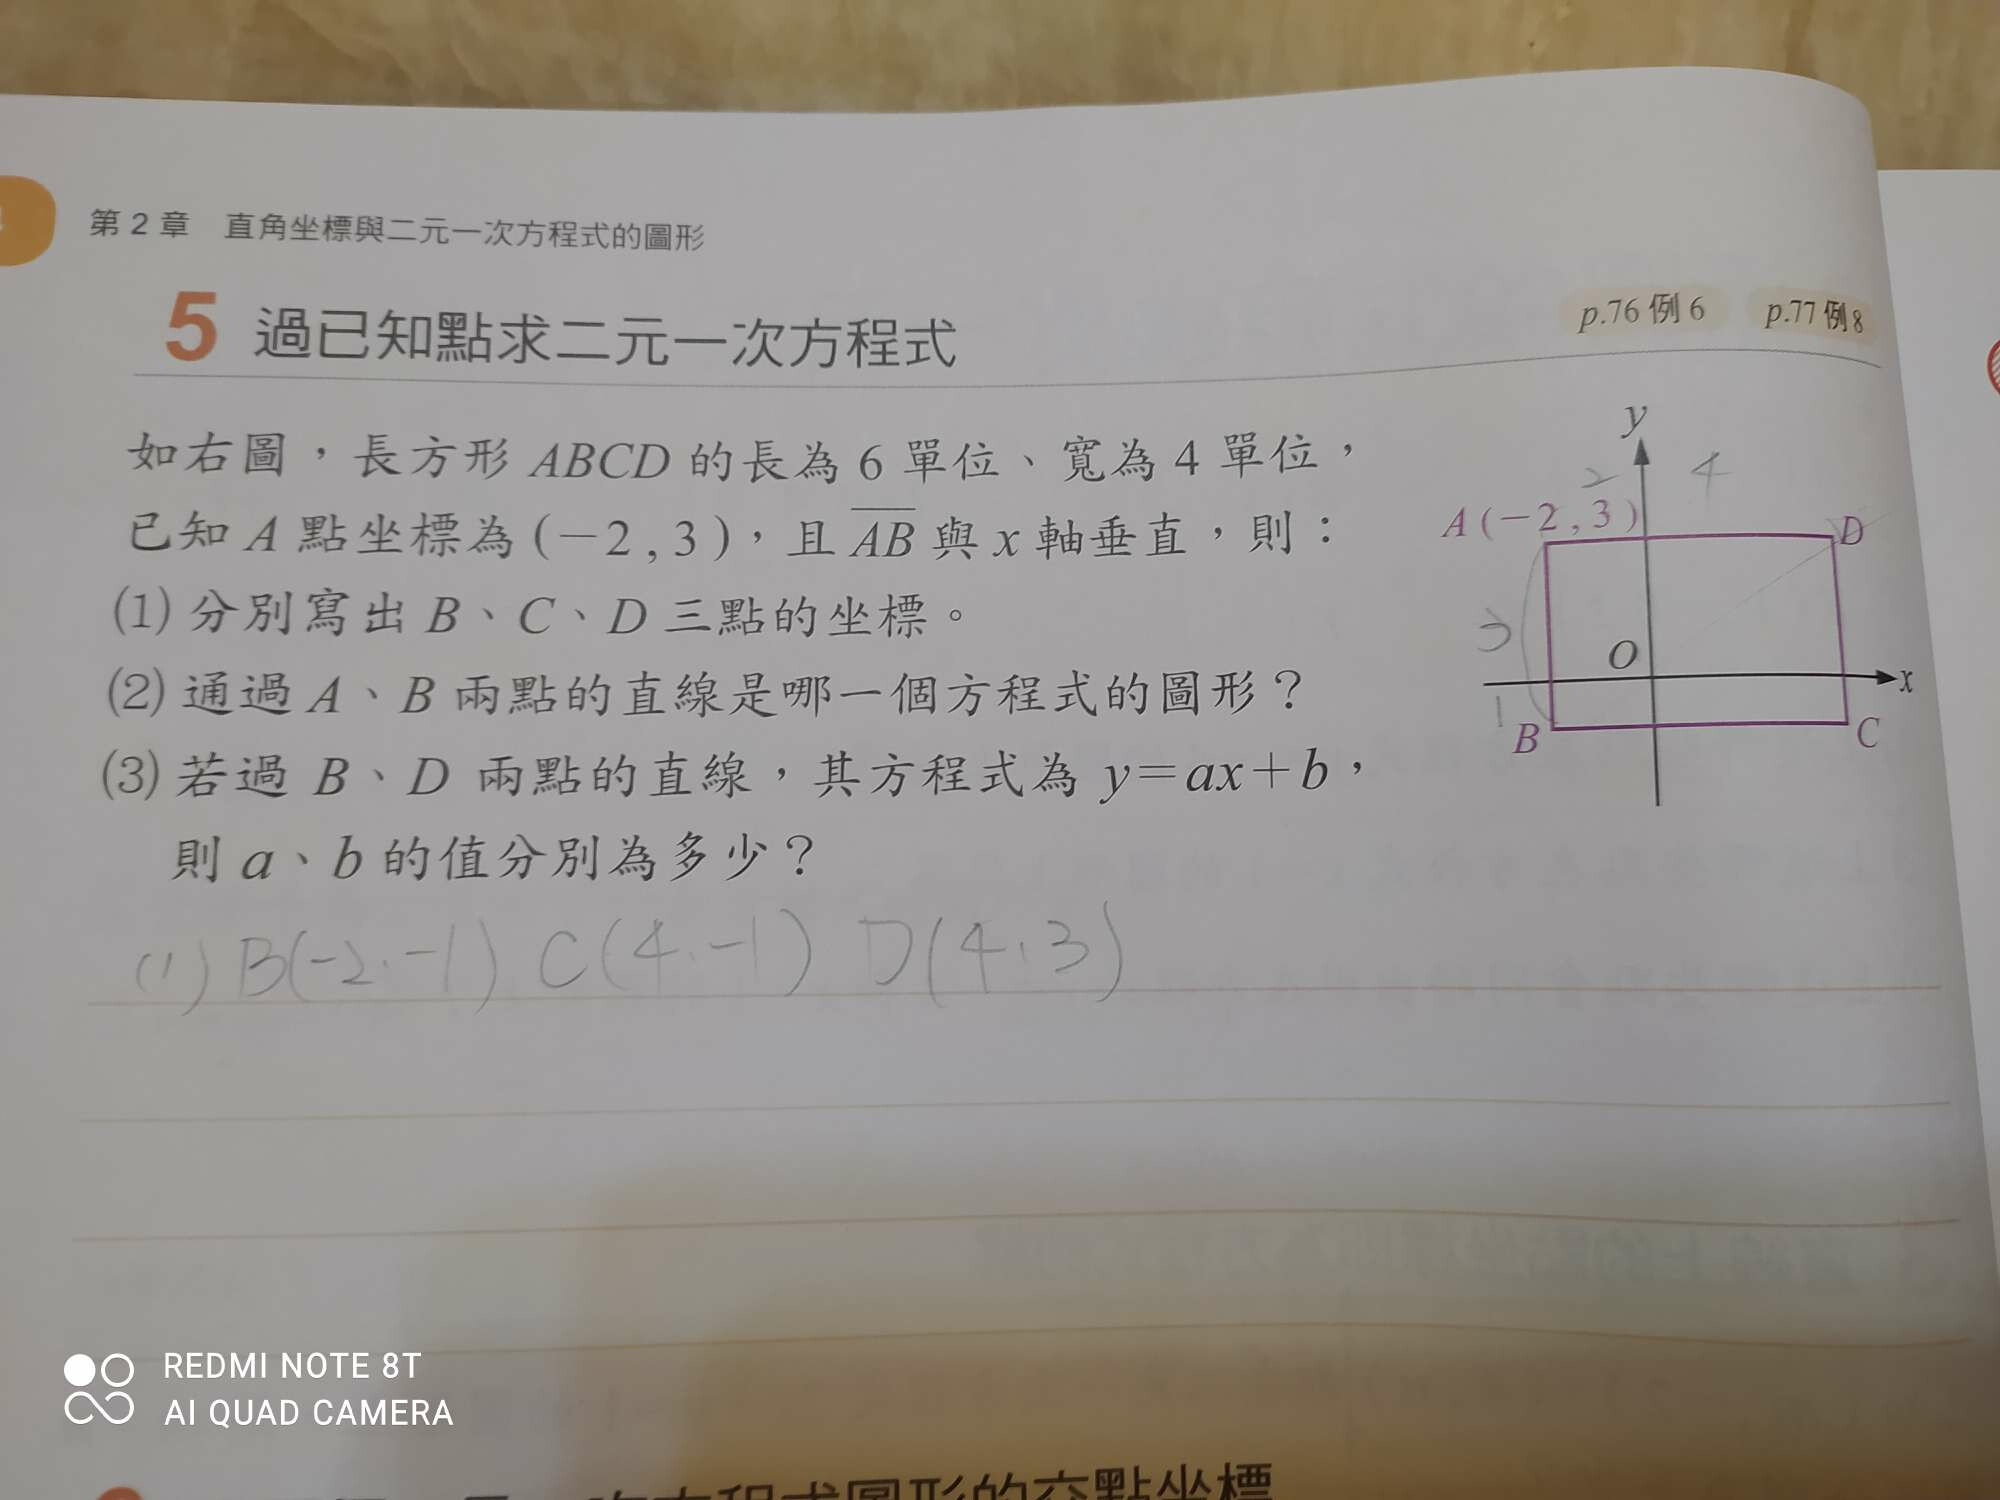 第 2 章 直角坐標與二元一次方程式的圖形
5 過已知點求二元一次方程式
p.76 例 6 p.77 例 8
如右圖，長方形 ABCD 的長為 6 單位、寬為 4 單位，
已知 A 點坐標為 (−2 , 3 )，且 AB 與 x 軸垂直，則：
(1) 分別寫出 B、C、D 三點的坐標。
(2) 通過 A、B 兩點的直線是哪一個方程式的圖形？
(3) 若過 B、D 兩點的直線，其方程式為 y=ax+b，
則 a、b 的值分別為多少？
y
2 4
A (−2 , 3 )
D
3
O
x
1
B
C
(1) B(-2,-1) C(4,-1) D(4,3)
REDMI NOTE 8T
AI QUAD CAMERA